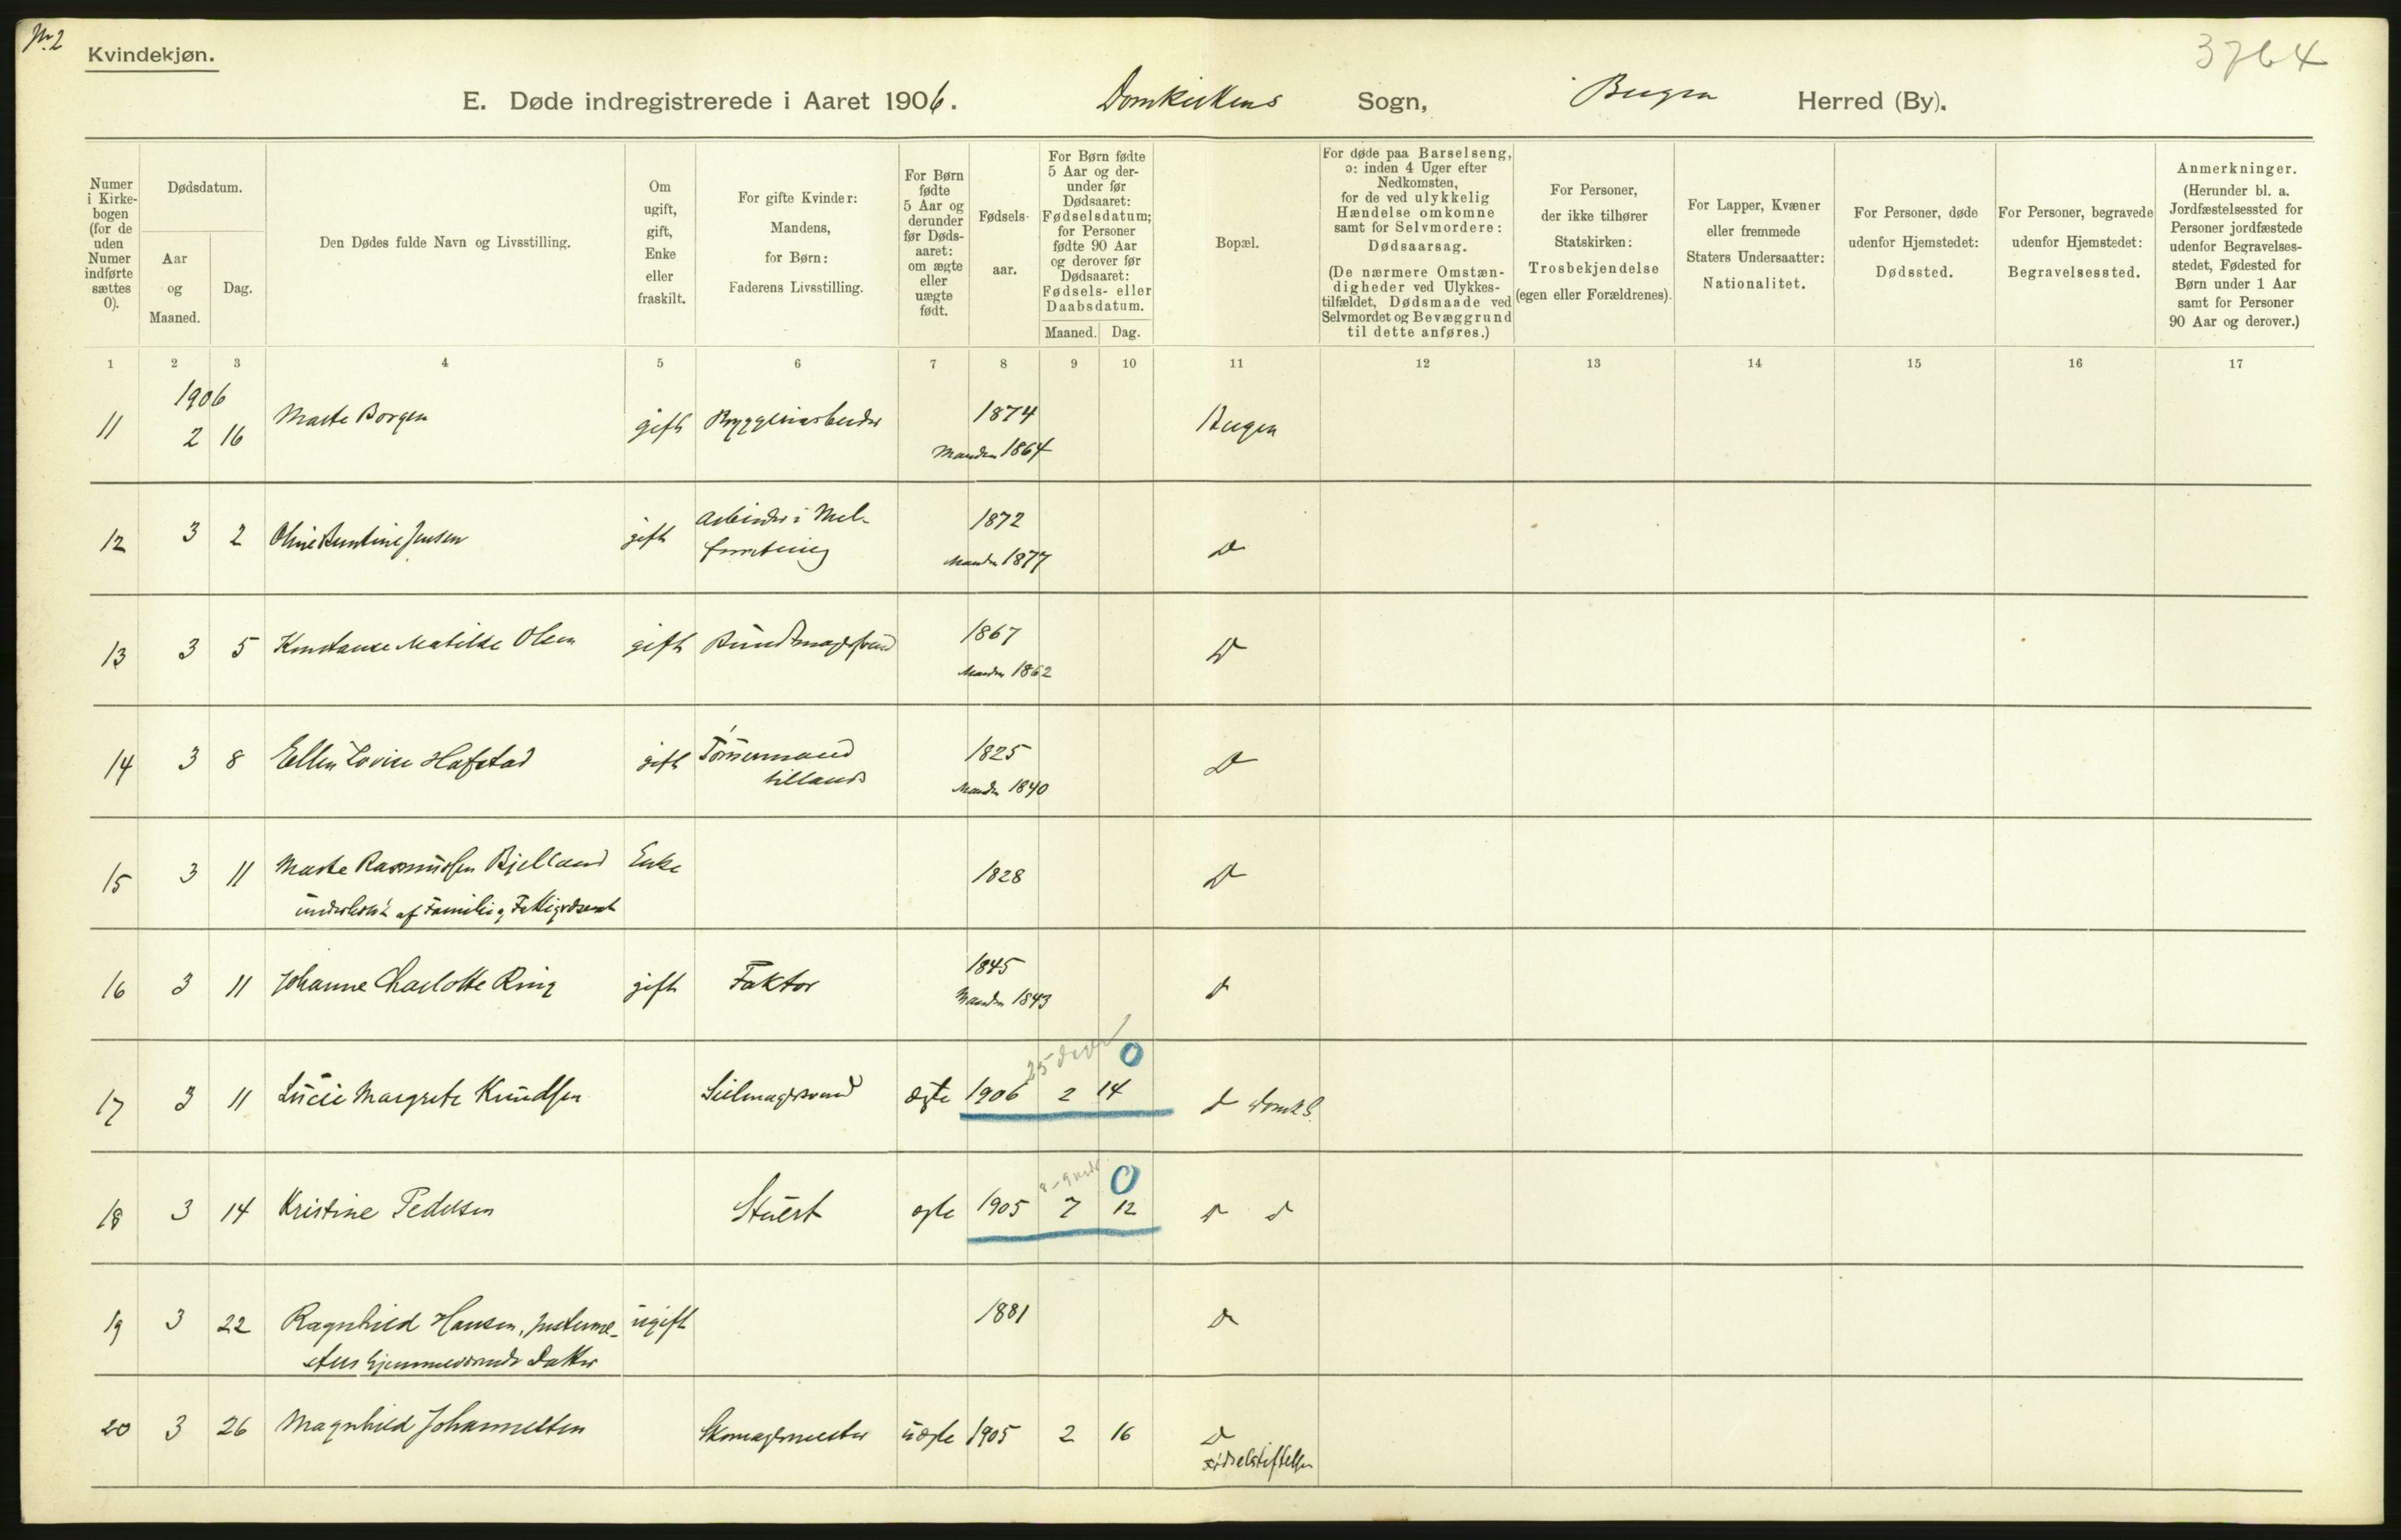 Nr. 2
Kvindekjøn.
3764
E. Døde indregistrerede i Aaret 1906. Domkirkens Sogn, i Bergen Herred (By).
Numer i Kirke-bogen (for de uden Numer indførte sættes 0).
Dødsdatum.
Aar og Maaned.
Dag.
Den Dødes fulde Navn og Livsstilling.
Om ugift, gift, Enke eller fraskilt.
For gifte Kvinder: Mandens, for Børn: Faderens Livsstilling.
For Børn fødte 5 Aar og derunder før Døds-aaret: om ægte eller uægte født.
Fødsels-aar.
For Børn fødte 5 Aar og der-under før Dødsaaret: Fødselsdatum; for Personer fødte 90 Aar og derover før Dødsaaret: Fødsels- eller Daabsdatum.
Maaned. Dag.
Bopæl.
For døde paa Barselseng, ɔ: inden 4 Uger efter Nedkomsten, for de ved ulykkelig Hændelse omkomne samt for Selvmordere: Dødsaarsag.
(De nærmere Omstæn-digheder ved Ulykkes-tilfældet, Dødsmaade ved Selvmordet og Bevæggrund til dette anføres.)
For Personer, der ikke tilhører Statskirken: Trosbekjendelse (egen eller Forældrenes).
For Lapper, Kvæner eller fremmede Staters Undersaatter: Nationalitet.
For Personer, døde udenfor Hjemstedet: Dødssted.
For Personer, begravede udenfor Hjemstedet: Begravelsessted.
Anmerkninger.
(Herunder bl. a. Jordfæstelsessted for Personer jordfæstede udenfor Begravelses-stedet, Fødested for Børn under 1 Aar samt for Personer 90 Aar og derover.)
1 2 3 4 5 6 7 8 9 10 11 12 13 14 15 16 17
1906
11 2 16 Marte Borgen gift Bryggeriarbeider 1874 Bergen
Manden 1864
12 3 2 Jensen gift Arbeider i Mel- 1872 D
forretning Manden 1877
13 3 5 Konstanse Matilde Olsen gift Buntmagersvend 1867 D
Manden 1862
14 3 8 Ellen Lovise Hafstad gift Tømmermand 1825 D
tillands Manden 1840
15 3 11 Marte Rasmussen Bjelland Enke 1828 D
underholdt af Familie og Fattigvæsenet
16 3 11 Johanne Charlotte Ring gift Faktor 1845 D
Manden 1843
25 dage 0
17 3 11 Lucie Margrete Knudsen Seilmagersvend ægte 1906 2 14 D Domk S.
8-9 mdr 0
18 3 14 Kristine Pedersen Stuert ægte 1905 7 12 D d
19 3 22 Ragnhild Hansen, ugift 1881 D
hjemmeværende Datter
20 3 26 Magnhild Johannessen Skomagermester uægte 1905 2 16 D
Fødselsstiftelsen